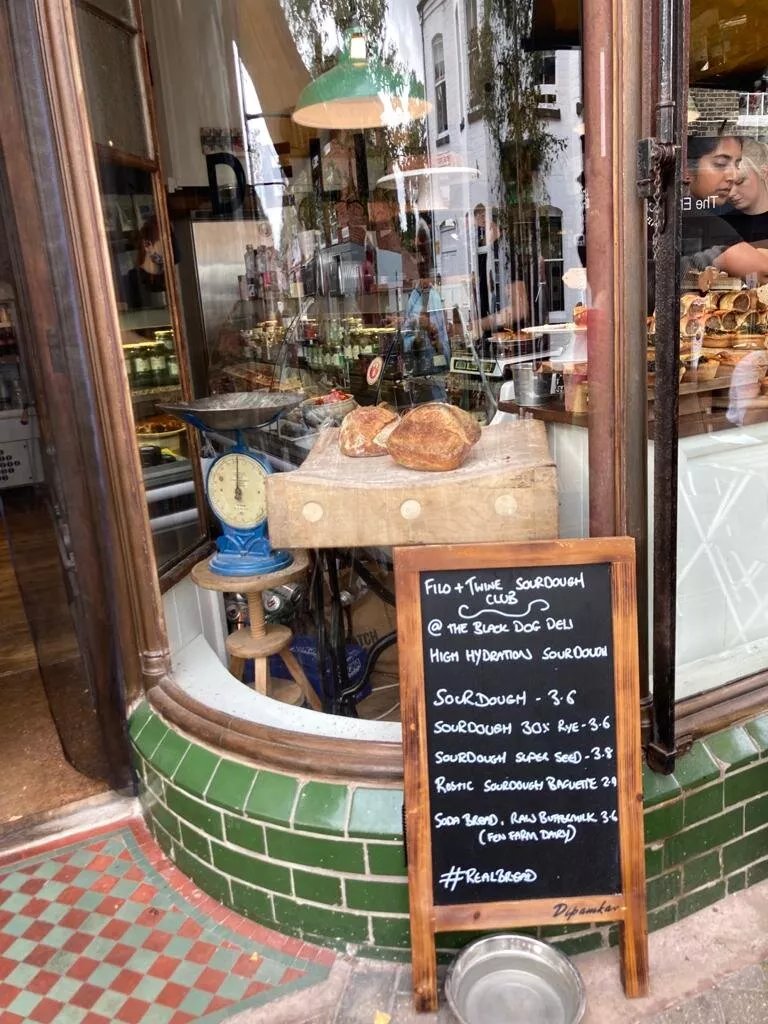 FILO + TWINE SOURDOUGH
CLUB
@ THE BLACK DOG DELI
HIGH HYDRATION SOURDOUGH
SOURDOUGH - 3.6
SOURDOUGH 30% RYE - 3.6
SOURDOUGH SUPER SEED - 3.8
RUSTIC SOURDOUGH BAGUETTE 2.9
SODA BREAD, RAW BUTTERMILK 3.6
(FEN FARM DAIRY)
#REALBREAD
Dipamkar
The